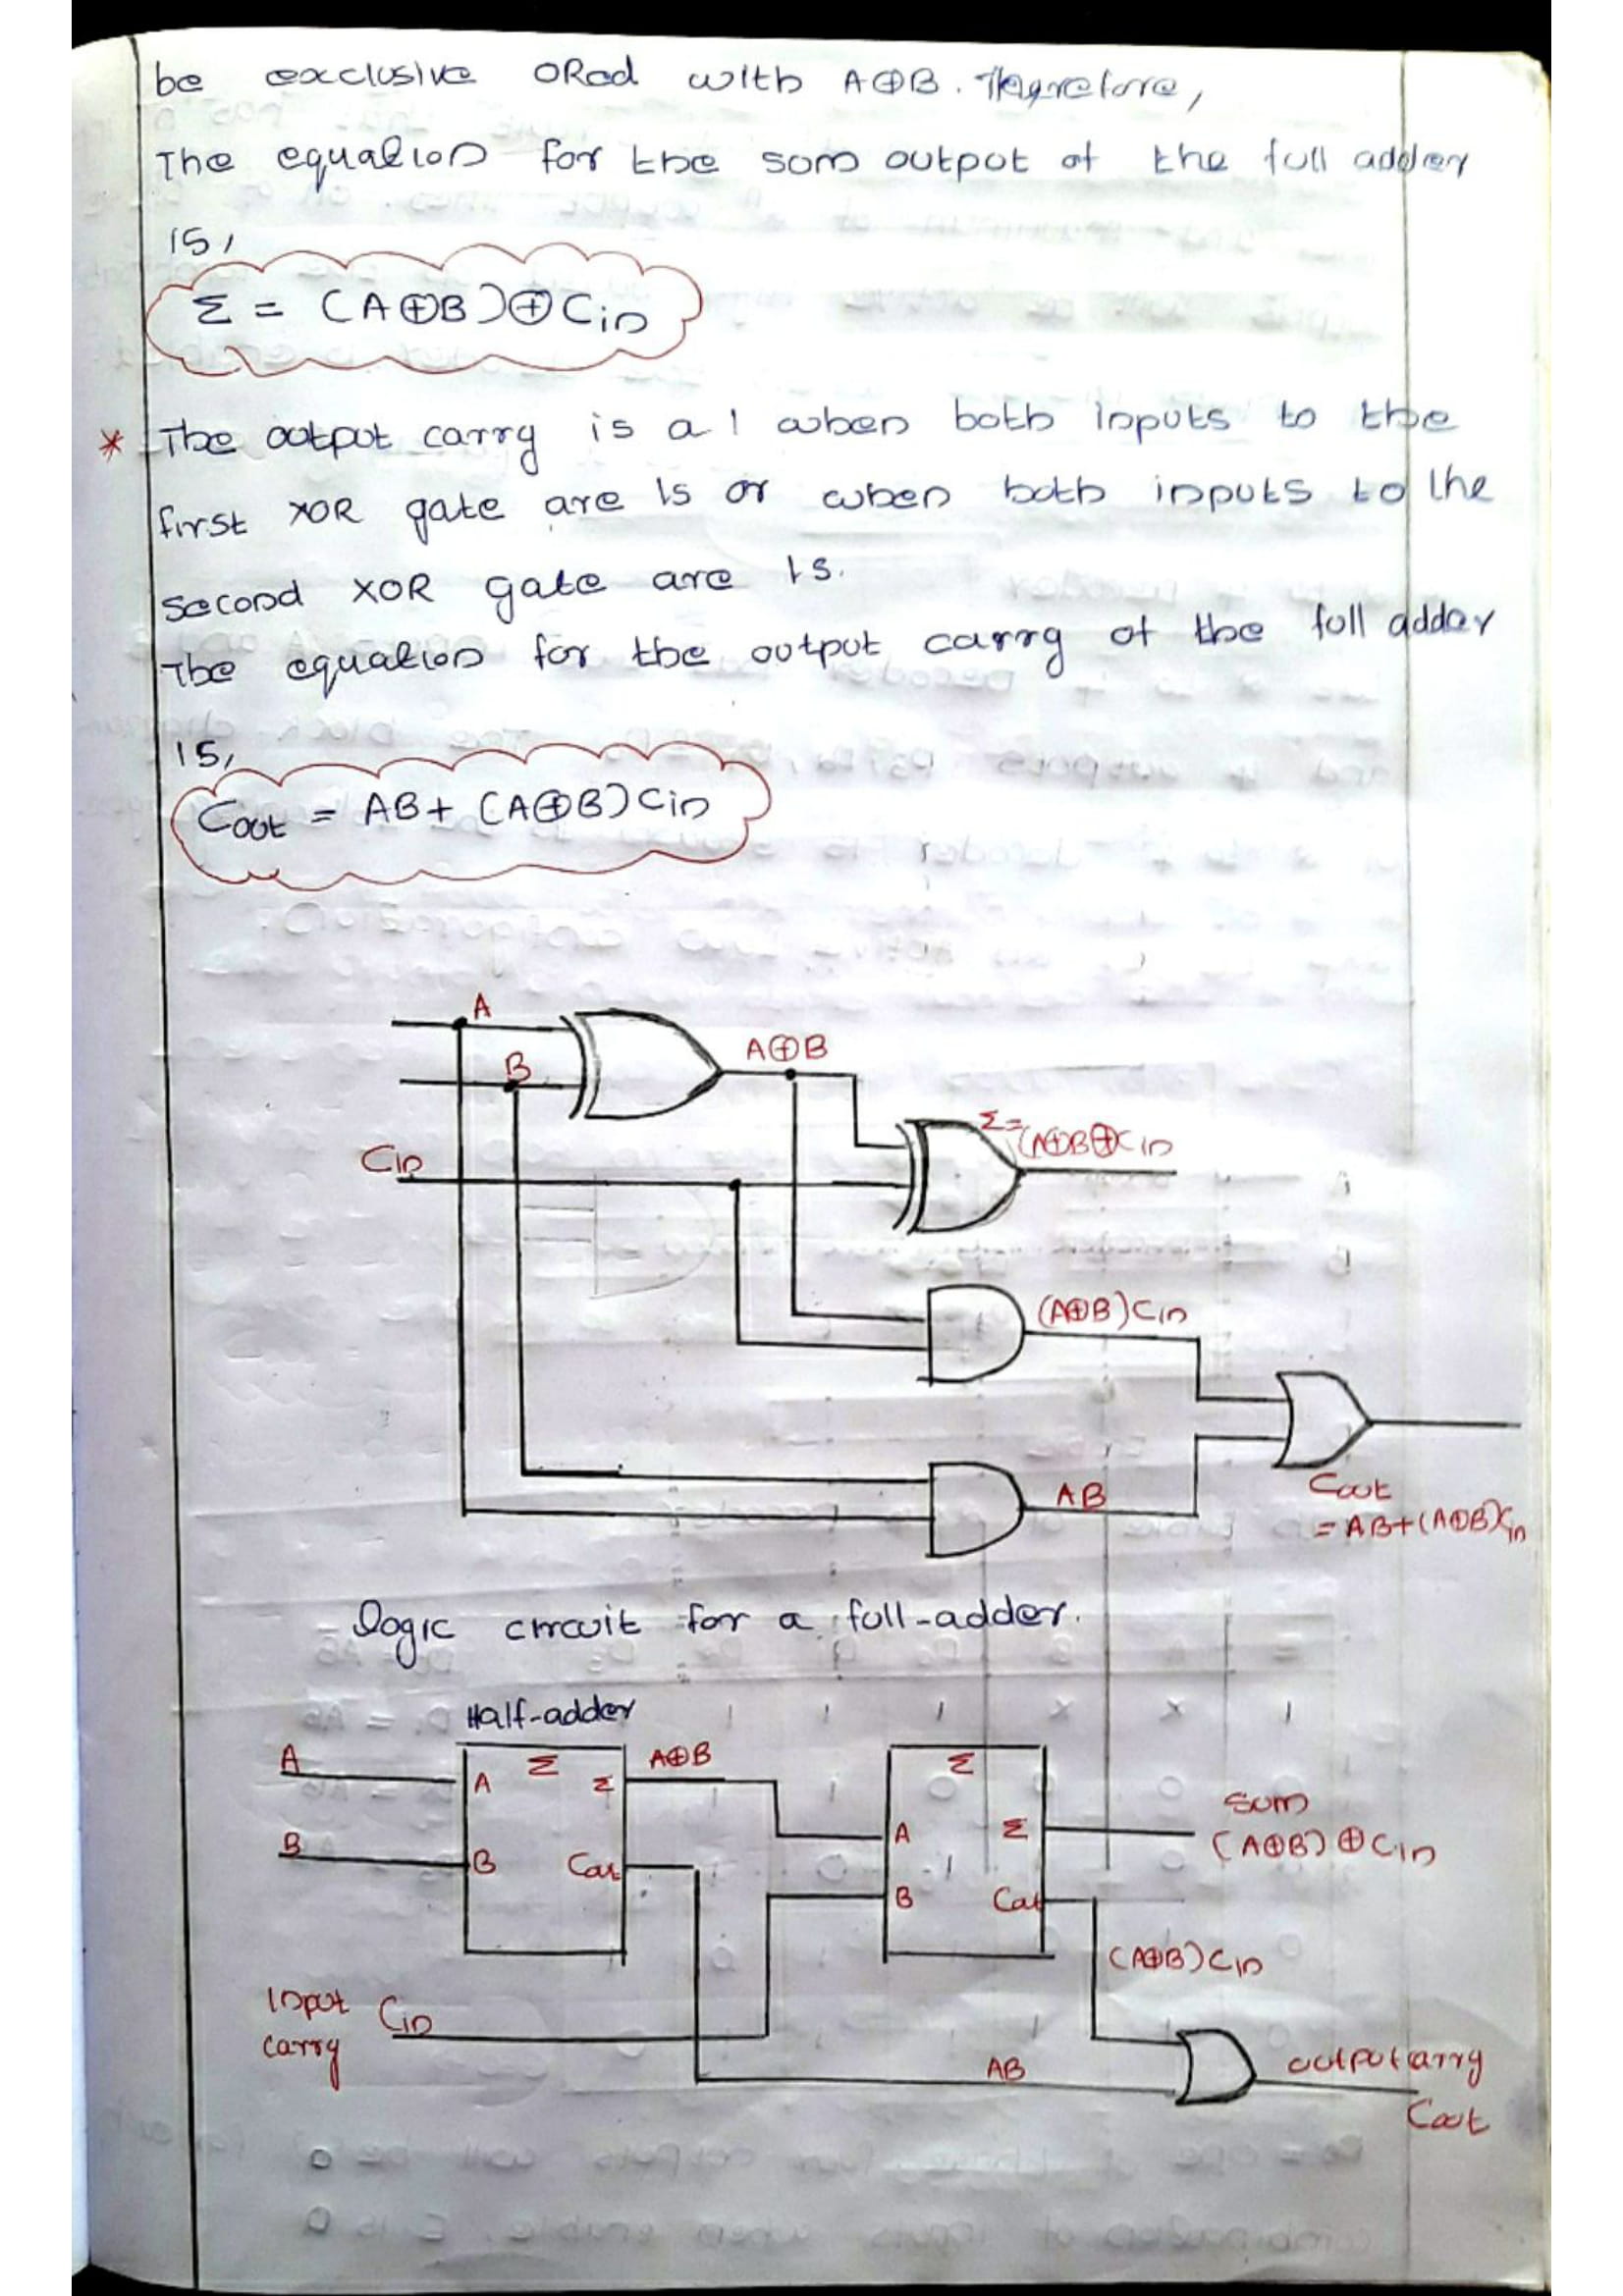 be exclusive ORed with A⊕B. Therefore,
The equation for the sum output of the full adder
is,
Σ = (A⊕B)⊕Cin
* The output carry is a 1 when both inputs to the
first XOR gate are 1s or when both inputs to the
second XOR gate are 1s.
The equation for the output carry of the full adder
is,
Cout = AB+ (A⊕B)Cin
A
B
A⊕B
Cin
Σ=
(A⊕B⊕Cin
(A⊕B)Cin
AB
Cout
= AB+(A⊕B)Cin
logic circuit for a full-adder.
Half-adder
A
A
Σ
Σ
A⊕B
B
B
Cout
Σ
A
Σ
Sum
(A⊕B)⊕Cin
B
Cout
(A⊕B)Cin
Input
carry
Cin
AB
output carry
Cout